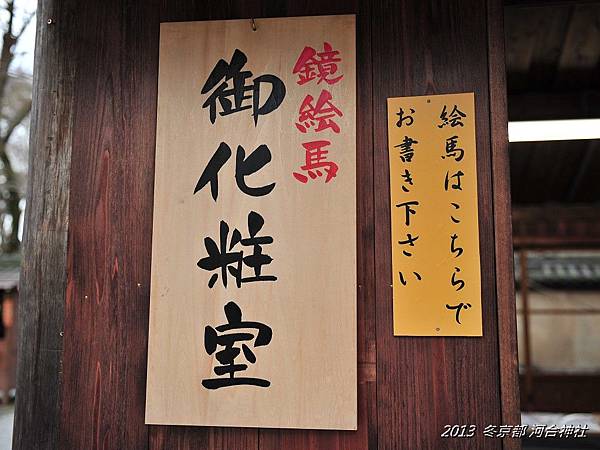 鏡絵馬
御化粧室
絵馬はこちらで
お書き下さい
2013 冬京都 河合神社